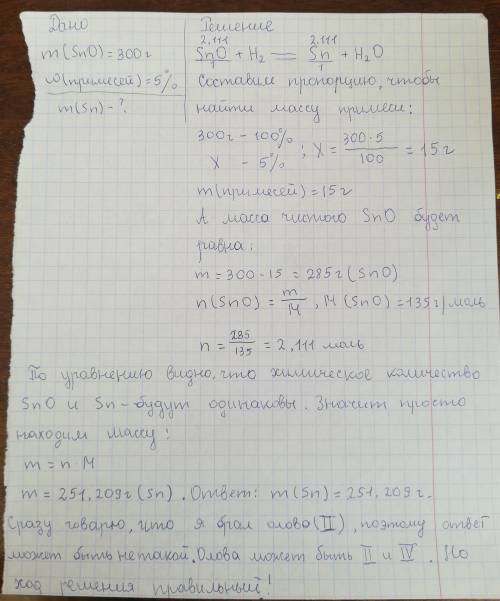 Дано
m(SnO)=300г
ω(примесей)=5%
m(Sn)-?
Решение
2,111 2.111
SnO + H₂ = Sn + H₂O
1 1
Составим пропорцию, чтобы
найти массу примеси:
300г - 100%
X - 5% ; X = 300·5/100 = 15г
m(примесей)=15г
А масса чистого SnO будет
равна:
m = 300-15 = 285г(SnO)
n(SnO) = m/M, M(SnO)=135г/моль
n = 285/135 = 2,111 моль
По уравнению видно, что химическое количество
SnO и Sn-будут одинаковы. Значит просто
находим массу:
m = n·M
m = 251,209г(Sn). Ответ: m(Sn)=251,209г.
Сразу говарю, что я брал олово(II), поэтому ответ
может быть не такой. Олова может быть II и IV. Но
ход решения правильный!